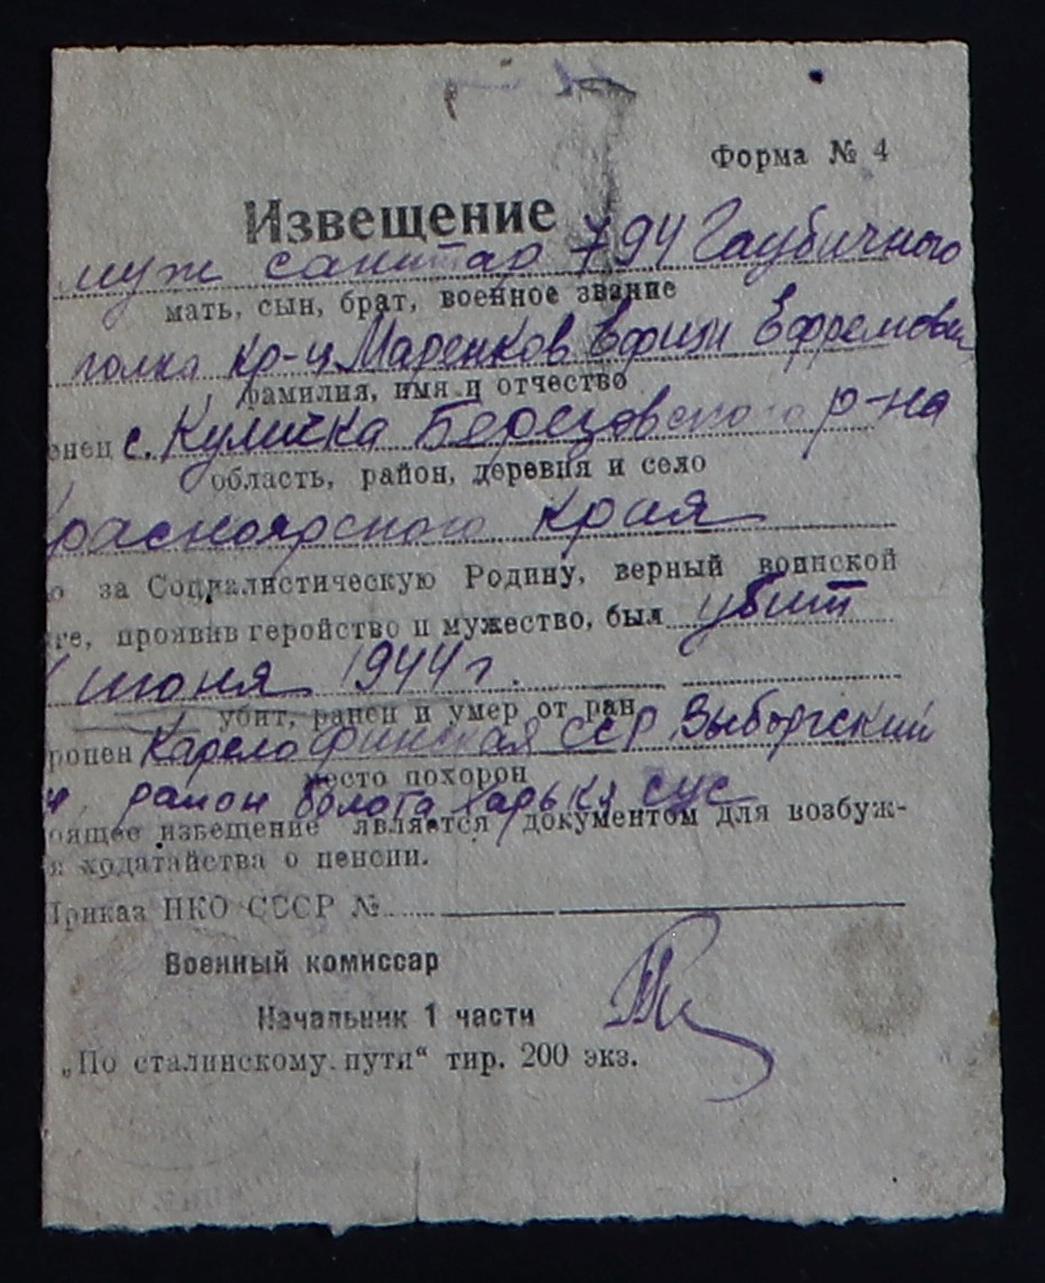 Форма № 4
Извещение
муж санитар 794 Гаубичного
мать, сын, брат, военное звание
полка кр-ц Маренков Ефим Ефремович
фамилия, имя и отчество
енец с. Куличка Березовского р-на
область, район, деревня и село
Красноярского края
о за Социалистическую Родину, верный воинской
ге, проявив геройство и мужество, был убит
июня 1944 г.
убит, ранен и умер от ран
ронен Карело Финская ССР Выборгский
место похорон
район болота сус
оящее извещение является документом для возбуж-
я ходатайства о пенсии.
Приказ НКО СССР №
Военный комиссар
Начальник 1 части
„По сталинскому пути“ тир. 200 экз.